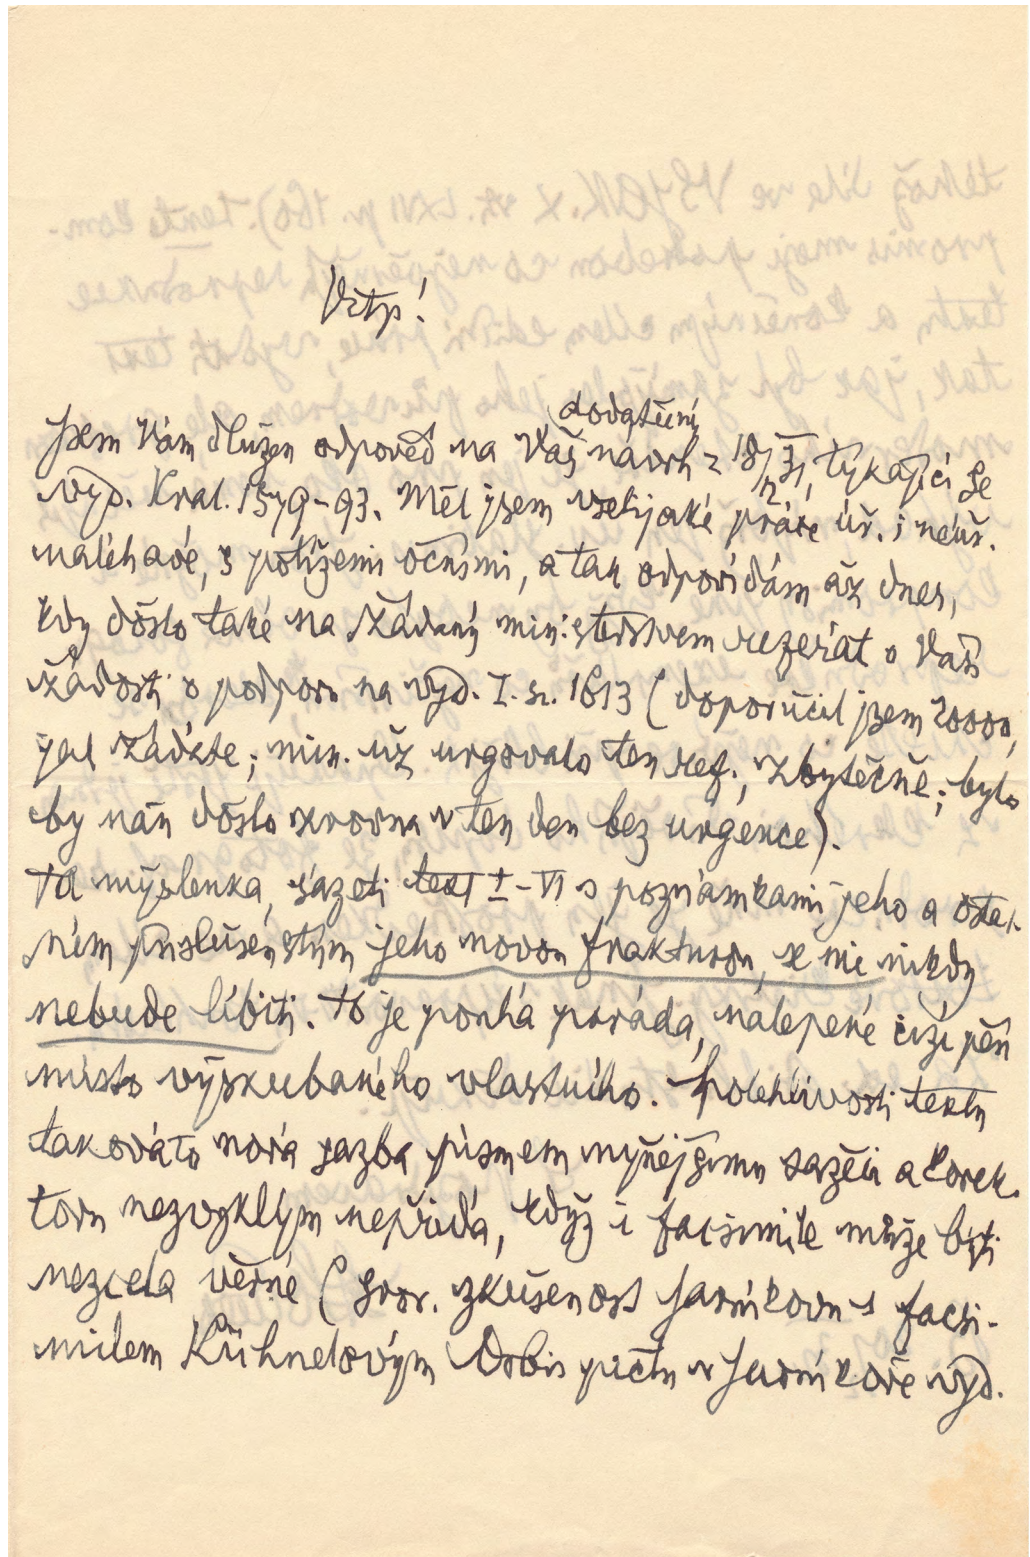 Vctp!
dodatečný
Jsem Vám dlužen odpověď na Váš návrh z 18/XI, týkající se
vyd. Kral. 1579-93. Měl jsem všelijaké práce úř. i neúř.
naléhavé, s potížemi očními, a tak odpovídám až dnes,
kdy došlo také na žádaný ministerstvem referát o Vaší
žádosti o podporu na vyd. I. sv. 1613 (doporučil jsem 20000,
jak žádáte; min. už urgovalo ten ref., zbytečně; bylo
by nám došlo zrovna v ten den bez urgence).
Ta myšlenka, sázeti text I-VI s poznámkami jeho a ostat.
ním příslušenstvím jeho novou frakturou, se mi nikdy
nebude líbiti. To je pouhá paráda, nalepené cizí peří
místo vyškubaného vlastního. Spolehlivosti textu
takováto nová sazba písmem nynějšímu sazeči a korek-
toru nezvyklým nepřidá, když i facsimile může býti
nezcela věrné (srov. zkušenost Jarníkovu s facsi-
milem Kühnelovým Dobis pictu v Jarníkově vyd.